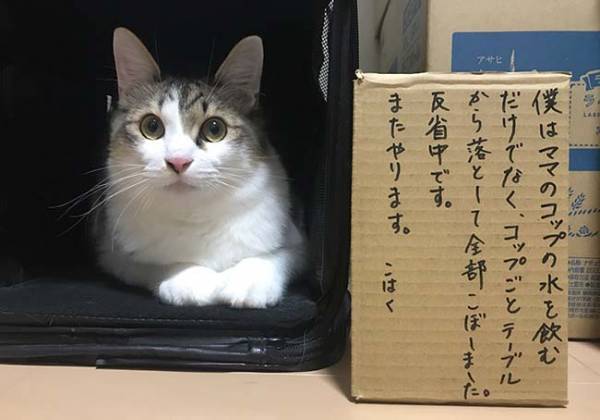 僕はママのコップの水を飲む
だけでなく、コップごとテーブル
から落として全部こぼしました。
反省中です。
またやります。
こはく
アサヒ